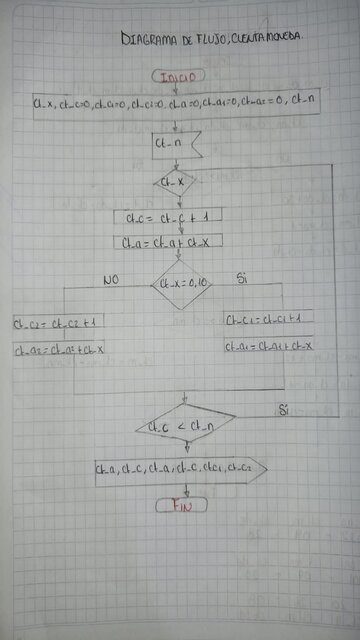 DIAGRAMA DE FLUJO, CUENTA MONEDA.
INICIO
ct_x, ct_c=0, ct_c1=0, ct_c2=0, ct_a=0, ct_a1=0, ct_a2=0, ct_n
ct_n
ct_x
ct_c = ct_c + 1
ct_a = ct_a + ct_x
NO
ct_x = 0,10
Si
ct_c2 = ct_c2 + 1
ct_c1 = ct_c1 + 1
ct_a2 = ct_a2 + ct_x
ct_a1 = ct_a1 + ct_x
Si
ct_c < ct_n
ct_a, ct_c, ct_a, ct_c, ct_c1, ct_c2
FIN